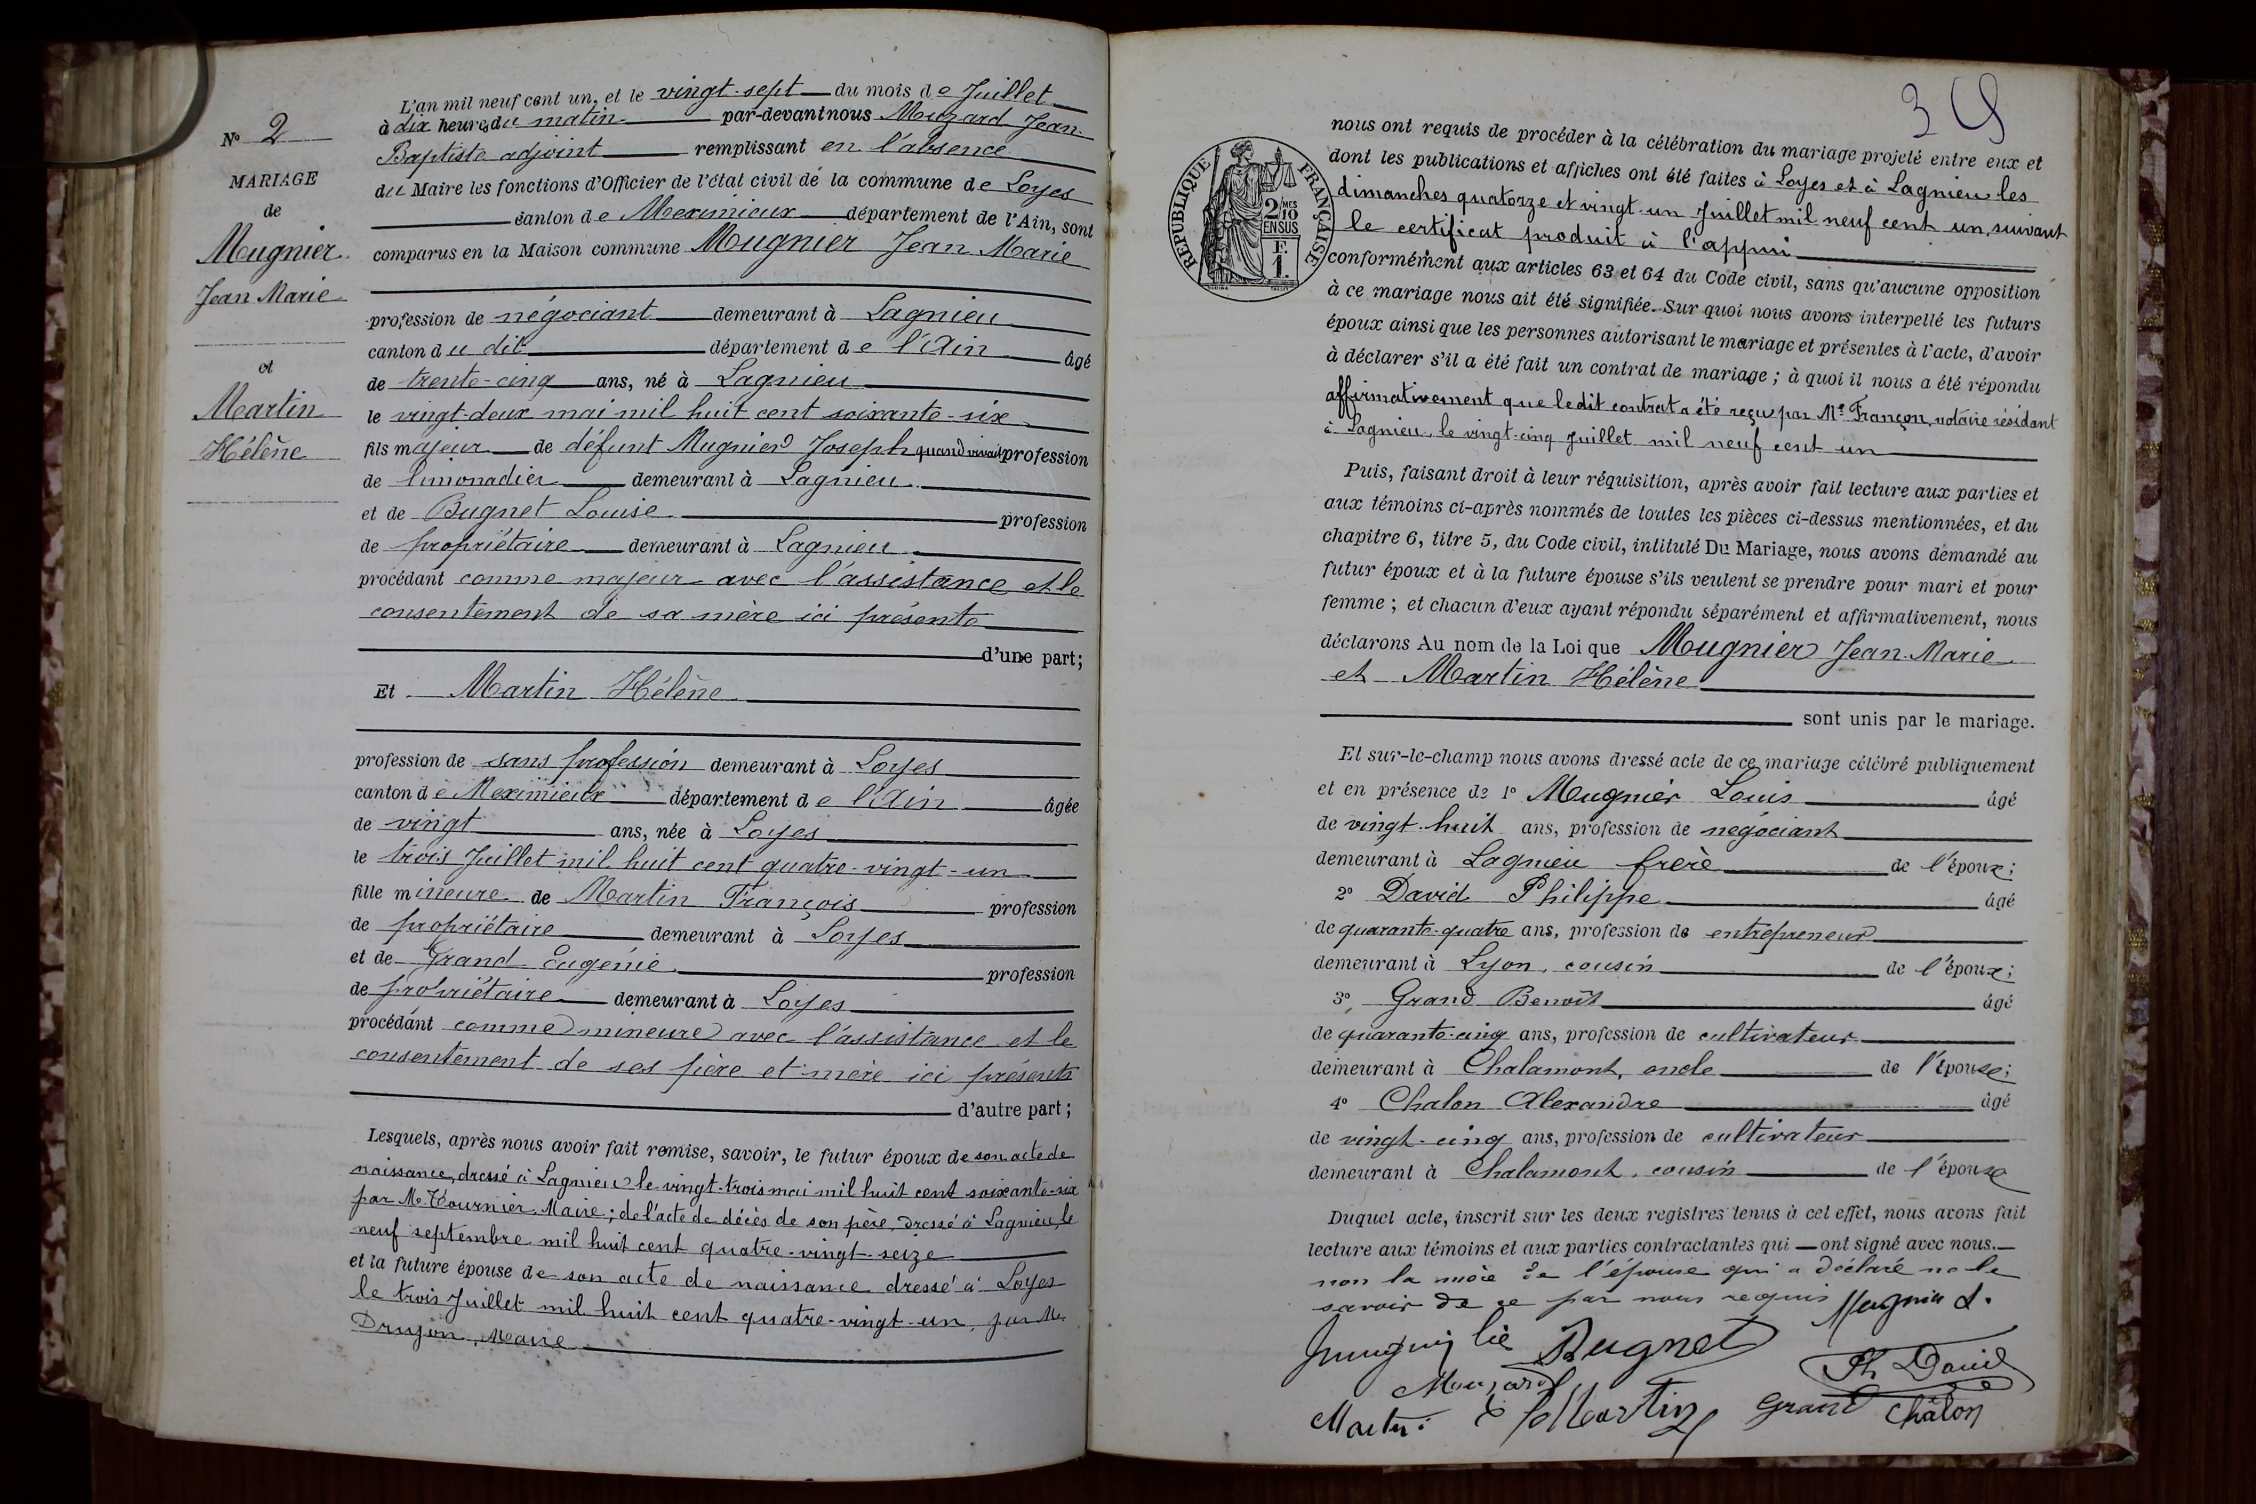 N° 2
MARIAGE
de
Mugnier
Jean Marie
et
Martin
Hélène
L'an mil neuf cent un, et le vingt-sept du mois de Juillet
à dix heures du matin par-devant nous Muzard Jean-
Baptiste adjoint remplissant en l'absence
du Maire les fonctions d'Officier de l'état civil de la commune de Loyes
canton de Meximieux département de l'Ain, sont
comparus en la Maison commune Mugnier Jean Marie
profession de négociant demeurant à Lagnieu
canton du dit département de l'Ain âgé
de trente-cinq ans, né à Lagnieu
le vingt-deux mai mil huit cent soixante-six
fils majeur de défunt Mugnier Joseph quand vivait profession
de limonadier demeurant à Lagnieu
et de Bugnet Louise profession
de propriétaire demeurant à Lagnieu
procédant comme majeur avec l'assistance et le
consentement de sa mère ici présente
d'une part;
Et Martin Hélène
profession de sans profession demeurant à Loyes
canton de Meximieux département de l'Ain âgée
de vingt ans, née à Loyes
le trois Juillet mil huit cent quatre-vingt-un
fille mineure de Martin François profession
de propriétaire demeurant à Loyes
et de Grand Eugénie profession
de propriétaire demeurant à Loyes
procédant comme mineure avec l'assistance et le
consentement de ses père et mère ici présents
d'autre part;
Lesquels, après nous avoir fait remise, savoir, le futur époux de son acte de
naissance, dressé à Lagnieu le vingt-trois mai mil huit cent soixante-six
par Mr Tournier, Maire; de l'acte de décès de son père, dressé à Lagnieu, le
neuf septembre mil huit cent quatre-vingt-seize
et la future épouse de son acte de naissance dressé à Loyes
le trois Juillet mil huit cent quatre-vingt-un, par Mr
Drujon, Maire
RÉPUBLIQUE FRANÇAISE
2 MES
10
EN SUS
F.
1.
nous ont requis de procéder à la célébration du mariage projeté entre eux et
dont les publications et affiches ont été faites à Loyes et à Lagnieu les
dimanches quatorze et vingt-un Juillet mil neuf cent un, suivant
le certificat produit à l'appui
conformément aux articles 63 et 64 du Code civil, sans qu'aucune opposition
à ce mariage nous ait été signifiée. Sur quoi nous avons interpellé les futurs
époux ainsi que les personnes autorisant le mariage et présentes à l'acte, d'avoir
à déclarer s'il a été fait un contrat de mariage; à quoi il nous a été répondu
affirmativement que ledit contrat a été reçu par Me Françon, notaire résidant
à Lagnieu, le vingt-cinq Juillet mil neuf cent un
Puis, faisant droit à leur réquisition, après avoir fait lecture aux parties et
aux témoins ci-après nommés de toutes les pièces ci-dessus mentionnées, et du
chapitre 6, titre 5, du Code civil, intitulé Du Mariage, nous avons demandé au
futur époux et à la future épouse s'ils veulent se prendre pour mari et pour
femme; et chacun d'eux ayant répondu séparément et affirmativement, nous
déclarons Au nom de la Loi que Mugnier Jean-Marie
et Martin Hélène
sont unis par le mariage.
Et sur-le-champ nous avons dressé acte de ce mariage célébré publiquement
et en présence de 1° Mugnier Louis âgé
de vingt-huit ans, profession de négociant
demeurant à Lagnieu frère de l'époux;
2° David Philippe âgé
de quarante-quatre ans, profession de entrepreneur
demeurant à Lyon, cousin de l'époux;
3° Grand Benoît âgé
de quarante-cinq ans, profession de cultivateur
demeurant à Chalamont, oncle de l'épouse;
4° Chalon Alexandre âgé
de vingt-cinq ans, profession de cultivateur
demeurant à Chalamont, cousin de l'épouse
Duquel acte, inscrit sur les deux registres tenus à cet effet, nous avons fait
lecture aux témoins et aux parties contractantes qui ont signé avec nous.
non la mère de l'épouse qui a déclaré ne le
savoir de ce par nous requis Mugnier L.
Bugnet
Ph David
Muzard
Martin Martin Grand Châlon